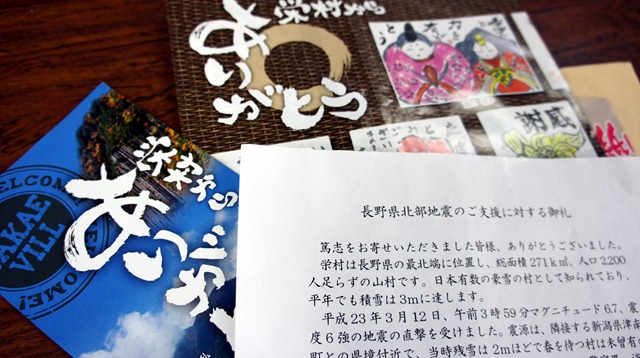 ありがとう
感謝
栄村から
ありがとう
WELCOME!
AKAE
VILL
長野県北部地震のご支援に対する御礼
篤志をお寄せいただきました皆様、ありがとうございました。
栄村は長野県の最北端に位置し、総面積271k㎡、人口2,200
人足らずの山村です。日本有数の豪雪の村として知られており、
平年でも積雪は3mに達します。
平成23年3月12日、午前3時59分マグニチュード6.7、震
度6強の地震の直撃を受けました。震源は、隣接する新潟県津南
町との県境付近で、当時残雪は2mほどで春を待つ村は未曾有